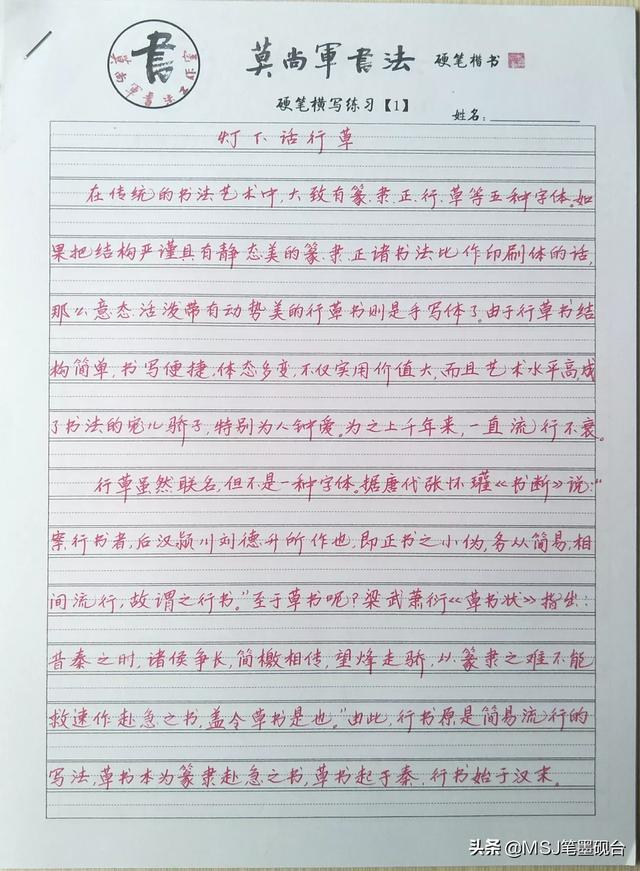 書
莫尚軍書法
莫尚軍書法 硬笔楷书
硬笔横写练习【1】
姓名:
灯下话行草
在传统的书法艺术中,大致有篆.隶.正.行.草等五种字体。如
果把结构严谨具有静态美的篆.隶.正诸书法比作印刷体的话,
那么意态活泼带有动势美的行草书则是手写体了。由于行草书结
构简单,书写便捷,体态多变,不仅实用价值大,而且艺术水平高,成
了书法的宠儿骄子,特别为人钟爱。为之上千年来,一直流行不衰。
行草虽然联名,但不是一种字体。据唐代张怀瓘《书断》说:“
案行书者,后汉颍川刘德升所作也,即正书之小伪,务从简易,相
间流行,故谓之行书。”至于草书呢?梁武萧衍《草书状》指出:
昔秦之时,诸侯争长,简檄相传,望烽走骄,以篆隶之难不能
救速作赴急之书,盖今草书是也。”由此,行书原是简易流行的
写法,草书本为篆隶赴急之书,草书起于秦.行书始于汉末。
头条 @MSJ笔墨砚台